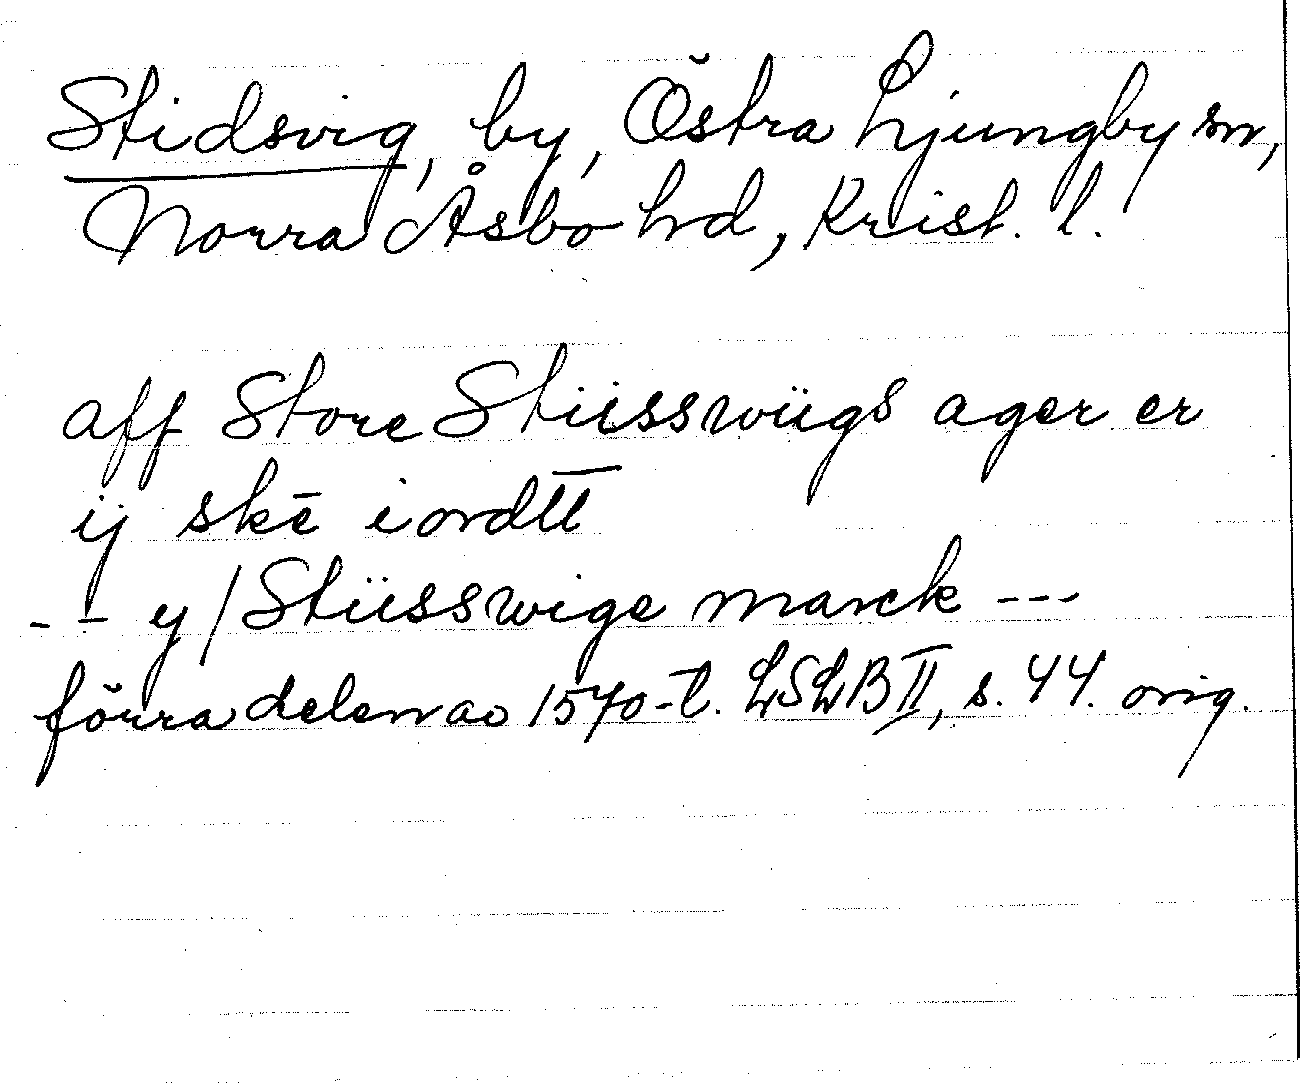 Stidsvig, by, Östra Ljungby sn,
Norra Åsbo hd, Krist. l.
aff Store Stüsswügs ager er
ij skē i ordt̄t̄
- - y / Stüsswige marck ---
förra delen av 1570-t. LSLB II, s. 44. orig.